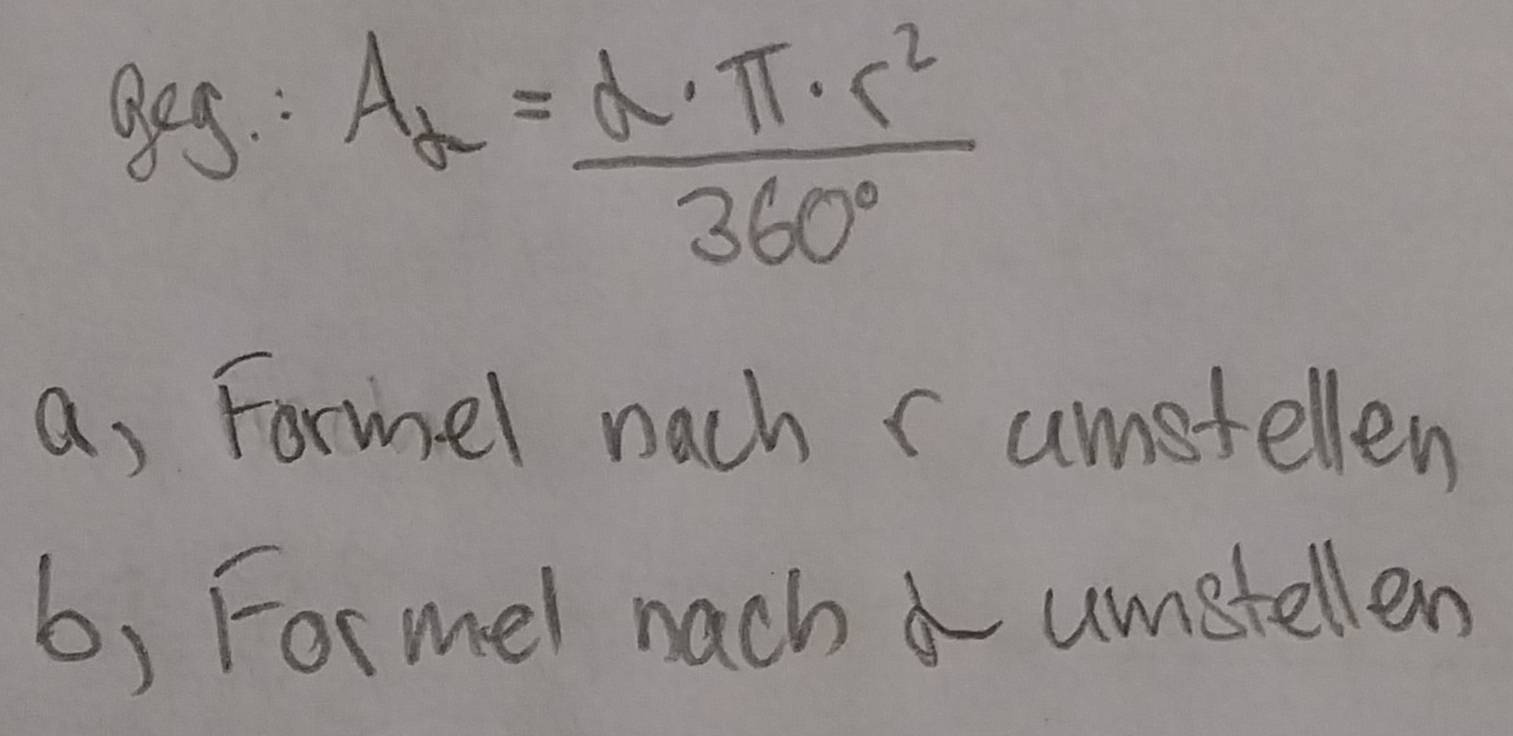 geg.: A_α = α · π · r² / 360°
a, Formel nach r umstellen
b, Formel nach α umstellen